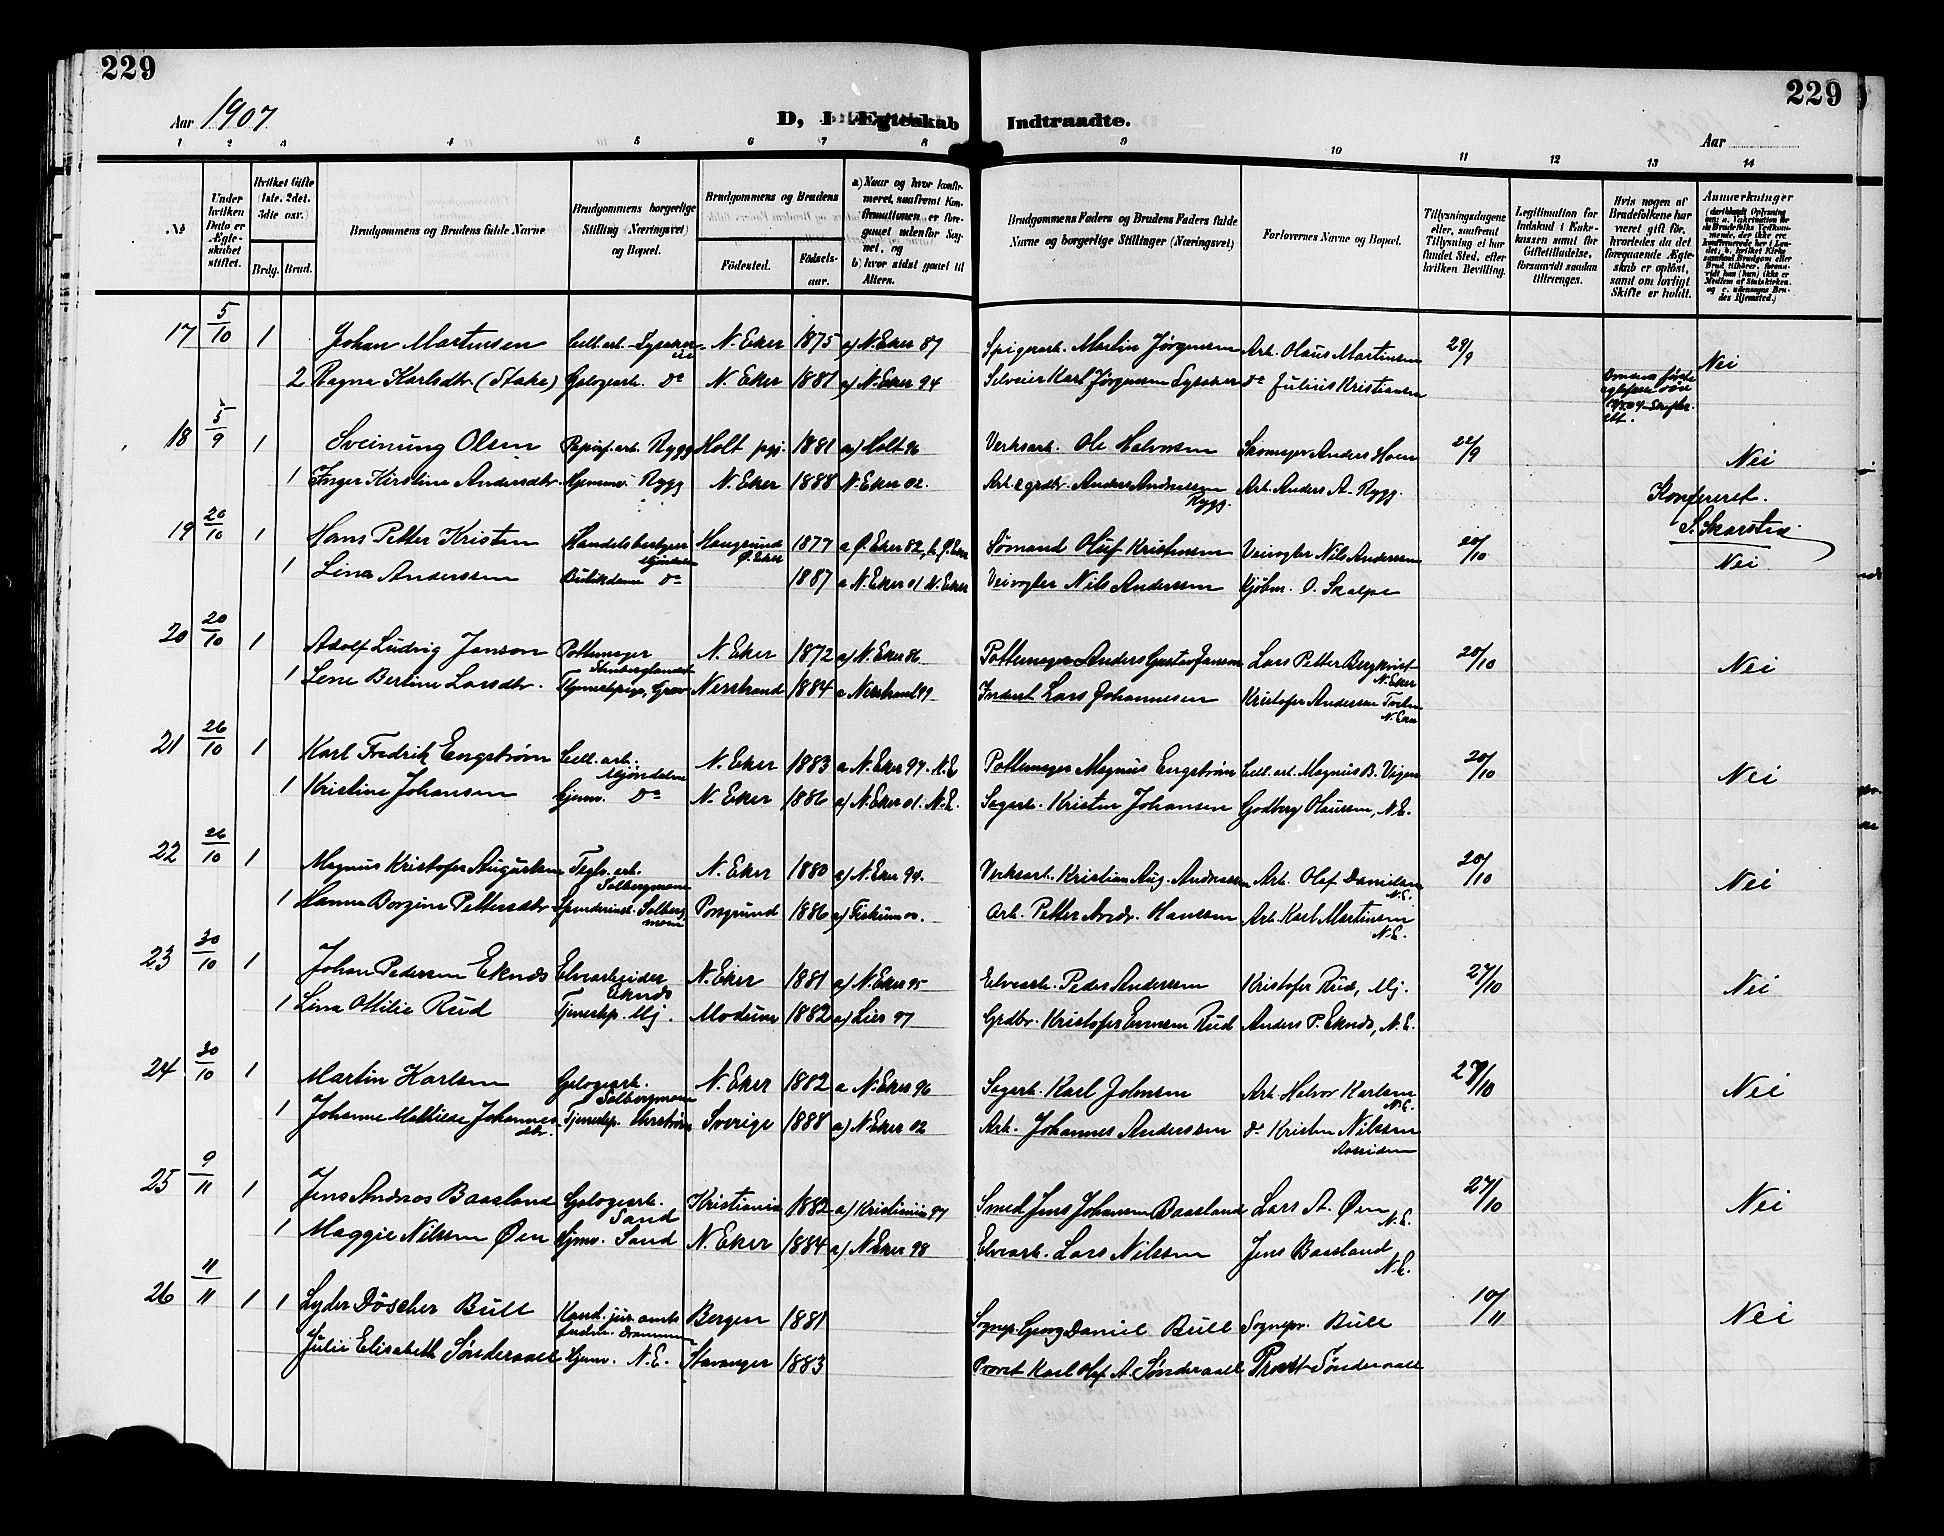 229
229
Aar 1907.
D, I Ægteskab Indtraadte.
Aar
1 2 3 4 5 6 7 8 9 10 11 12 13 14
No
Under hvilken Dato er Ægteskabet stiftet.
Hvilket Gifte (1ste, 2det, 3die osv.)
Brdg. Brud.
Brudgommens og Brudens fulde Navne
Brudgommens borgerlige Stilling (Næringsvei) og Bopæl.
Brudgommens og Brudens
Födested. Födselsaar.
a) Naar og hvor konfirmeret, saafremt Konfirmationen er foregaaet udenfor Sognet, og
b) hvor sidst gaaet til Alters.
Brudgommens Faders og Brudens Faders fulde Navne og borgerlige Stillinger (Næringsvei)
Forlovernes Navne og Bopæl.
Tillysningsdagene eller, saafremt Tillysning ei har fundet Sted, efter hvilken Bevilling.
Legitimation for Indskud i Enkekassen samt for Giftetilladelse, forsaavidt saadan tiltrænges.
Hvis nogen af Brudefolkene har været gift før, hvorledes da det foregaaende Ægteskab er opløst, samt om lovligt Skifte er holdt.
Anmærkninger
17 5/10 1 Johan Martinsen Cell.arb. Lysaker N. Eker 1875 a) N. Eker 87 Spigerarb. Martin Jørgensen Arb. Olaus Martinsen 29/9 Nei
2 Ragna Karlsdtr. (Stake) Galogearb. do N. Eker 1881 a) N. Eker 94 Karl Jørgensen Lysaker do Julius Kristiansen
18 5/9 1 Sveinung Olsen Papirf.arb. Rygg Holt pgj. 1881 a) Holt 96 Verksarb. Ole Halvorsen Skomager Anders Hoen 22/9 Nei
1 Inger Kirstine Andersdtr. Hjemmv. Rygg N. Eker 1888 N. Eker 02. Arb. & grdbr. Anders Andreassen Rygg. Arb. Anders A. Rygg.
Konfereret.
S. Skarsten
19 20/10 1 Hans Petter Kristen Handelsbestyrer Mjøndalen Haugsund Ø. Eker 1877 a Ø. Eker 82, b. Ø. Eker Sømand Oluf Kristensen Veivogter Nils Anderssen 20/10 Nei
1 Lina Anderssen Butikdame do 1887 a N. Eker 01 N. Eker Veivogter Nils Anderssen Kjøbm. O. Skalpe
20 20/10 1 Adolf Ludvig Janson Pottemager Stenberglandet N. Eker 1872 a) N. Eker 86 Pottemager Anders Gustav Janson Lars Petter Bergkvist N. Eker 20/10 Nei
1 Lene Bertine Larsdtr. Tjenestepige, Grav Nerstrand 1884 a Nerstrand 99 Inderst Lars Johannesen Kristofer Anderssen N. Eker
21 26/10 1 Karl Fredrik Engstrøm Cell.arb. Mjøndalen N. Eker 1883 a N. Eker 97. N. E Pottemager Magnus Engstrøm Cell.arb. Magnus B. 20/10 Nei
1 Kristine Johansen Hjmv. do N. Eker 1886 a) N. Eker 01. N. E. Sagarb. Kristen Johansen Godberg Olaussen, N. E.
22 26/10 1 Magnus Kristofer Augustsen Teglv.arb. Solbergmoen N. Eker 1880 a) N. Eker 94. Verksarb. Kristian Aug. Andreassen Arb. Olaf Danielsen N. E. 20/10 Nei
1 Hanna Borgine Pettersdtr. Spinderinde Solbergmoen Porsgrund 1886 a) Fiskum 00. Arb. Petter Andr. Hanssen Arb. Karl Martinsen N. E.
23 30/10 1 Johan Pedersen Eknæs Elvearbeider Eknæs N. Eker 1881 a) N. Eker 95 Elvearb. Peder Anderssen Kristofer Rud, Mj. 27/10 Nei
1 Lina Otilie Rud Tjenestep. Mj. Modum 1882 a) Lier 97 Grdbr. Kristofer Evensen Rud Anders P. Eknæs, N. E.
24 30/10 1 Martin Karlsen Galogearb. Solbergmoen N. Eker 1882 a N. Eker 96 Sagarb. Karl Johnsen Arb. Halvor Karlsen N. E. 27/10 Nei
1 Johanne Mathilde Johannesdtr. Tjenestep. Sverige 1888 a) N. Eker 02 Arb. Johannes Anderssen do Kristen Nilssen Aassiden
25 9/11 1 Jens Andreas Baasland Galogearb. Sand Kristiania 1882 a) Kristiania 97 Smed Jens Johansen Baasland Lars A. Øen N. E. 27/10 Nei
1 Maggie Nilssen Øen Hjmv. Sand N. Eker 1884 a) N. Eker 98 Elvearb. Lars Nilssen Jens Baasland N. E.
26 11/11 1 1 Lyder Döscher Bull Kand. jur. amts Drammen Bergen 1881 Sognep. Georg Daniel Bull Sognepr. Bull 10/11 Nei
Julie Elisabeth Sønderaall Hjmv. N. E. Stavanger 1883 Provst Karl Olaf A. Sønderaall Provst Sønderaall